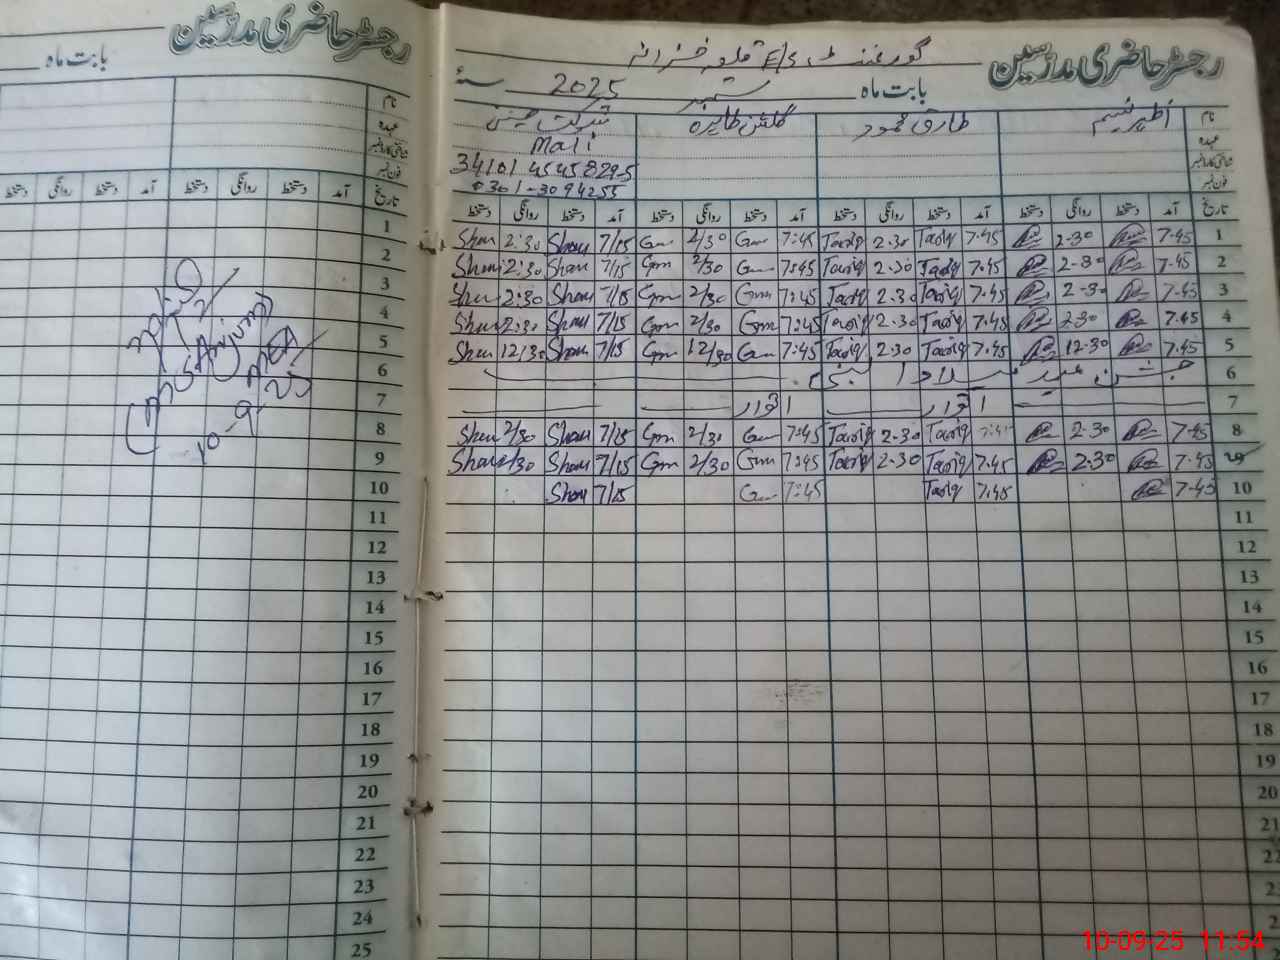 رجسٹر حاضری مدرسین
گورنمنٹ E/S قلعہ خزانہ
بابت ماہ ستمبر 2025 سنہ
نام اظہر نسیم طارق محمود گلشن طاہرہ شوکت حسین
عہدہ Mali
شناختی کارڈ نمبر 34101 4545829-5
فون نمبر 0301-3094255
تاریخ آمد دستخط روانگی دستخط آمد دستخط روانگی دستخط آمد دستخط روانگی دستخط آمد دستخط روانگی دستخط
Shou 2:30 Shou 7/15 Gm 2/30 Gm 7:45 Tariq 2.30 Tariq 7.45 2-30 7.45 1
Shou 2:30 Shou 7/15 Gm 2/30 Gm 7:45 Tariq 2.30 Tariq 7.45 2-30 7.45 2
Shou 2:30 Shou 7/15 Gm 2/30 Gm 7:45 Tariq 2.30 Tariq 7.45 2-30 7.45 3
Shou 2:30 Shou 7/15 Gm 2/30 Gm 7:45 Tariq 2.30 Tariq 7.45 2.30 7.45 4
Shou 12/30 Shou 7/15 Gm 12/30 Gm 7:45 Tariq 2.30 Tariq 7.45 12.30 7.45 5
جشن عید میلادالنبی 6
اتوار اتوار 7
Shou 2/30 Shou 7/15 Gm 2/30 Gm 7:45 Tariq 2.30 Tariq 7.45 2.30 7.45 8
Shou 2/30 Shou 7/15 Gm 2/30 Gm 7:45 Tariq 2.30 Tariq 7.45 2.30 7.45 9
Shou 7/15 Gm 7:45 Tariq 7.45 7.45 10
11
12
13
14
15
16
17
18
19
20
21
22
رجسٹر حاضری مدرسین
بابت ماہ
نام
عہدہ
شناختی کارڈ نمبر
فون نمبر
تاریخ آمد دستخط روانگی دستخط آمد دستخط روانگی دستخط
1
2
3
4
5
6
7
8
9
10
11
12
13
14
15
16
17
18
19
20
21
22
23
24
25
MEA
10-9-25
10-09-25 11:54